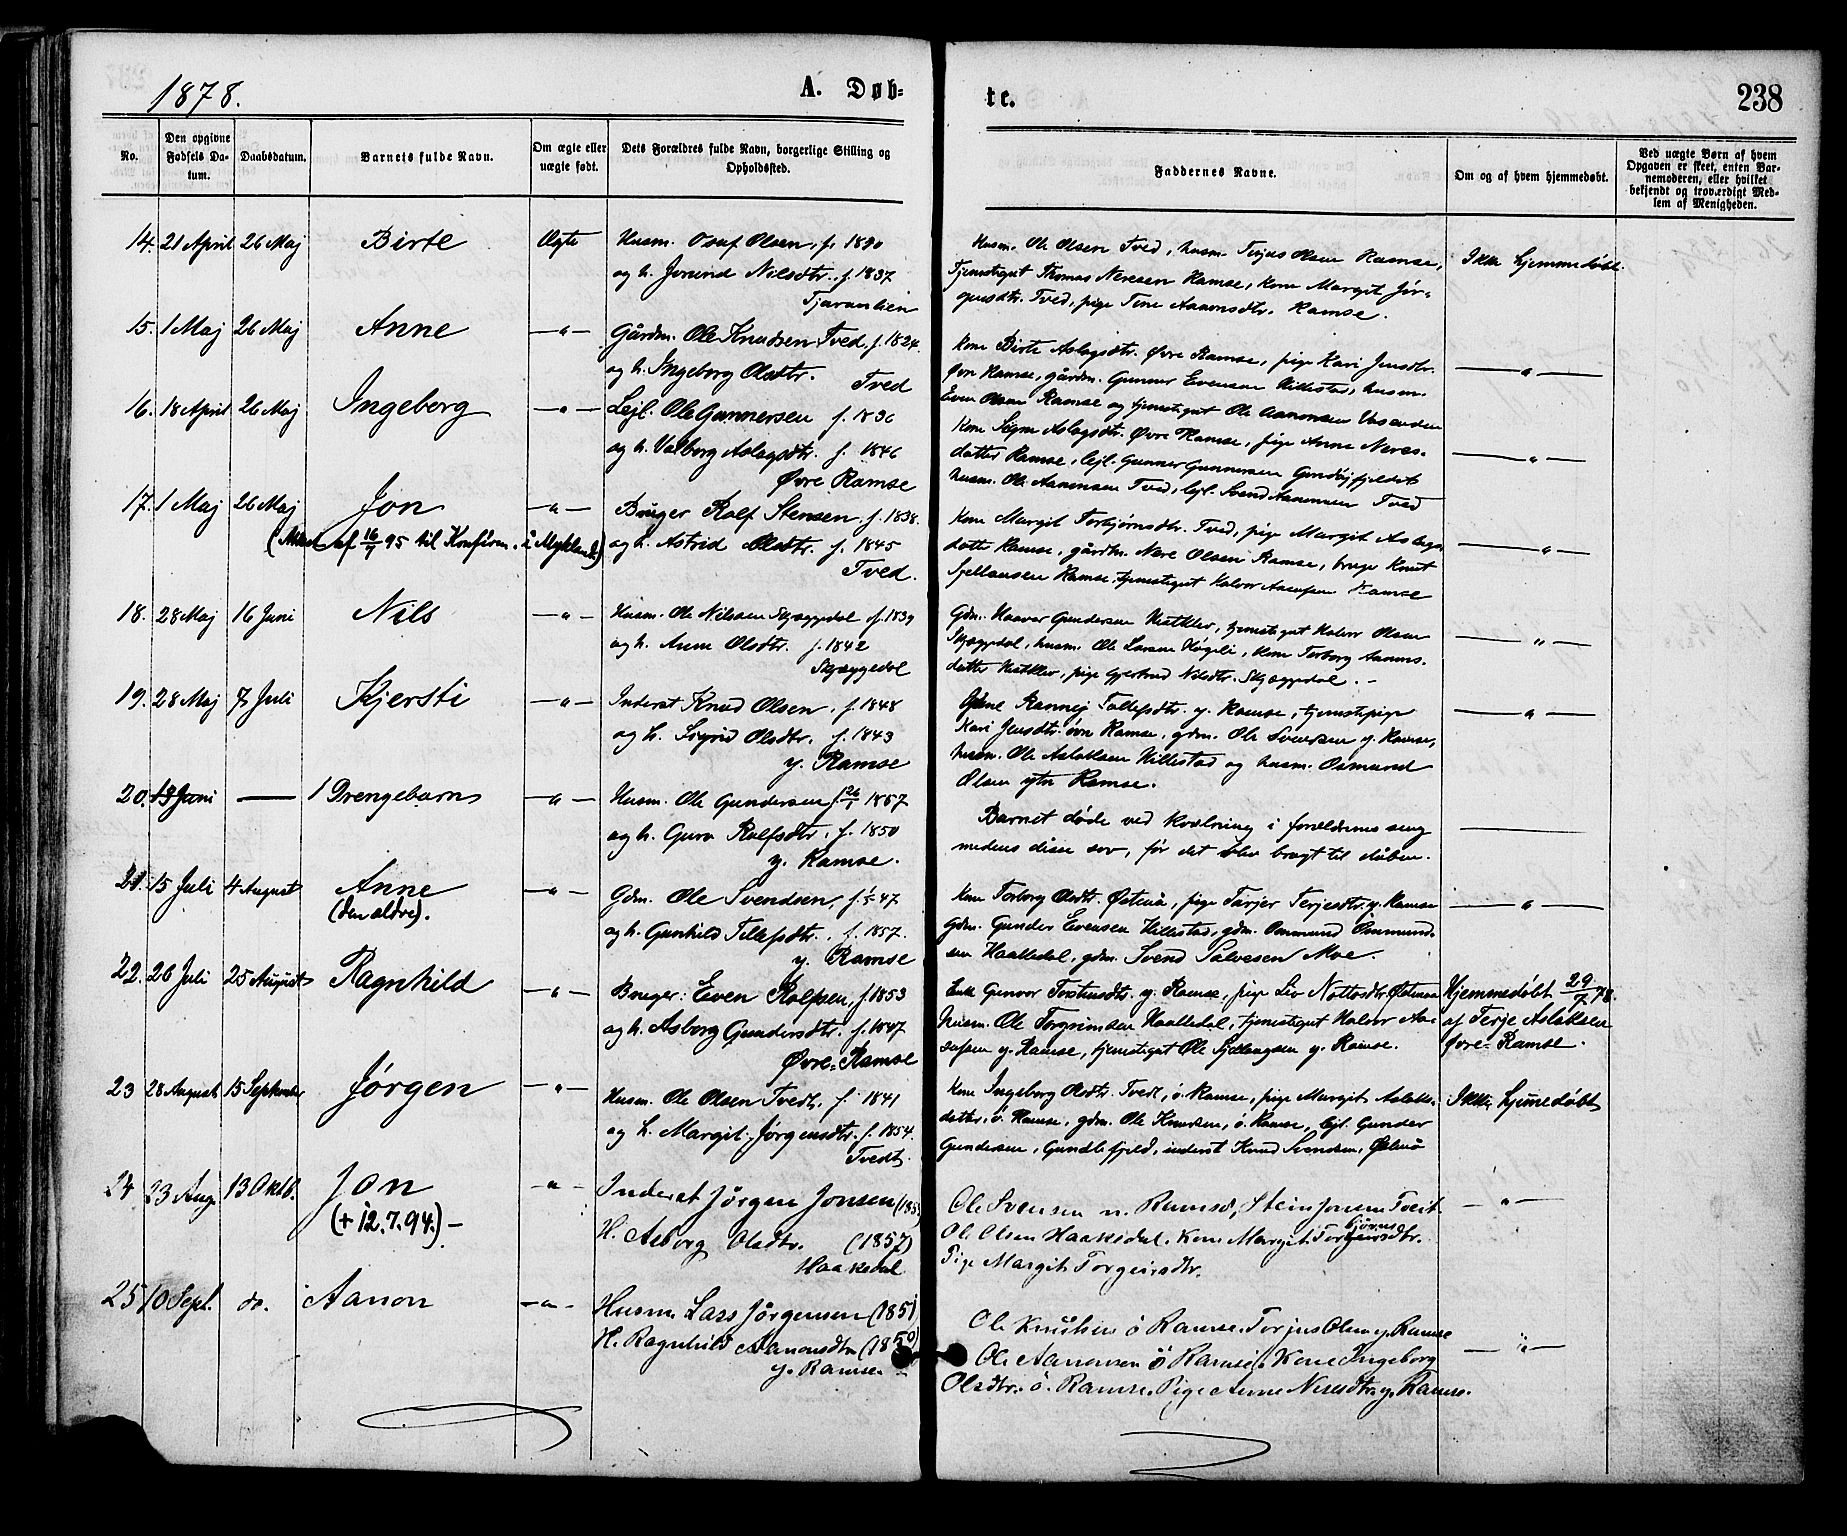 1878.
A. Døb-
te.
238
No.
Den opgivne Fødsels Datum.
Daabsdatum.
Barnets fulde Navn.
Om ægte eller uægte født.
Dets Forældres fulde Navn, borgerlige Stilling og Opholdssted.
Faddernes Navne.
Om og af hvem hjemmedøbt.
Ved uægte Børn af hvem Opgaven er skeet, enten Barnemoderen, eller hvilket bekjendt og troværdigt Medlem af Menigheden.
14. 21 April 26 Maj Birte Ægte Husm. Osuf Olsen, f. 1830
og h. Jorund Nilsdtr. f. 1837
Husm. Ole Olsen Tved, husm. Terjus Olsen Ramse,
Tjenestegut Thomas Neresen Ramse, kone Margit Jør-
gensdtr. Tved, pige Tine Aanonsdtr. Ramse.
Ikke hjemmedøbt.
15. 1 Maj 26 Maj Anne —"— Gårdm. Ole Knudsen Tved f. 1824.
og h. Ingeborg Olsdtr.
Tved
kone Birte Aslagsdtr. Øvre Ramse, pige Kari Jensdtr.
Øvre Ramse, gårdm. Gunner Evensen Hillestad, husm.
Even Olsen Ramse og tjenestegut Ole Aanonsen
—"—
16. 18 April 26 Maj Ingeborg —"— Lejl. Ole Gunnersen f. 1836
og h. Valborg Aslagsdtr. f. 1846
Øvre Ramse
Kone Signe Aslagsdtr. Øvre Ramse, pige Anne Neres-
datter Ramse, lejl. Gunner Gunnersen
husm. Ole Aanonsen Tved, lejl. Svend Aanonsen Tved
—"—
17. 1 Maj 26 Maj Jon —"— Bruger Rolf Stensen f. 1838.
(Attest af 16/7 95 til Konfirm. i Mykland) og h. Astrid Olsdtr. f. 1845
Tved.
Kone Margit Torbjørnsdtr. Tved, pige Margit Aslags-
datter Ramse, gårdm. Nere Olsen Ramse, bruger Knut
Ramse, tjenestegut Halvor Ramse
—"—
18. 28 Maj 16 Juni Nils —"— Husm. Ole Nilssen Skjæggedal f. 1839
og h. Anne Olsdtr. f. 1842
Skjæggedal
Gdm. Haaver Gundersen Hestklev, tjenestegut Halvor Olsen
Skjæggedal, husm. Ole Larsen Høgeli, kone Torborg Aanons-
datter Hestklev, pige Gjertrud Nilsdtr. Skjæggedal. —
—"—
19. 28 Maj 7 Juli Kjersti —"— Inderst Knud Olsen, f. 1848
og h. Sigrid Olsdtr. f. 1843
y. Ramse
Rannej Tollefsdtr. y. Ramse, tjenestepige
Kari Jensdtr. øvre Ramse, gdm. Ole Svendsen y. Ramse,
husm. Ole Aslaksen Hillestad og husm. Osmund
Olsen ytre Ramse.
—"—
20. 13 Juni — 1 Drengebarn —"— Husm. Ole Gundersen f. 26/1 1857
og h. Guro Rolfsdtr. f. 1850
y. Ramse.
Barnet døde ved kvælning i forældrenes seng
medens disse sov, før det blev bragt til dåben.
—
21. 15 Juli 4 August Anne —"— Gdm. Ole Svendsen, f. 47
(den ældre). og h. Gunhild Tellefsdtr. f. 1857.
y. Ramse
kone Torborg Olsdtr. Østenå, pige Tarjer Terjesdtr. y. Ramse
Gdm. Gunder Evensen Hillestad, gdm. Ommund Ommund-
sen Haalledal, gdm. Svend Salvesen Moe.
—"—
22. 26 Juli 25 August Ragnhild —"— Bruger: Even Rolfsen, f. 1853
og h. Asborg Gundersdtr. f. 1847
Øvre-Ramse
Enke Gunvor y. Ramse, pige Liv Østenaa
husm. Ole Torgrimsen Haalledal, tjenestegut Halvor
y. Ramse, tjenestegut Ole y. Ramse.
Hjemmedøbt 29/7 78.
af Terje Aslaksen
Øvre-Ramse.
23 28 August 15 September Jørgen —"— Husm. Ole Olsen Tvedt. f. 1841
og h. Margit Jørgensdtr. f. 1854.
Tvedt.
Kone Ingeborg Olsdtr. Tvedt, ø. Ramse, pige Margit Aslak-
datter, ø. Ramse, gdm. Ole Knudsen, ø. Ramse, lejl. Gunder
Gundersen, Gundlefjeld, inderst Knud Svendsen, Østenå
Ikke hjemmedøbt
24 23 Aug. 13 Oktb. Jon —"— Inderst Jørgen Jonsen
(+ 12.7.94.) — H. Asborg Olsdtr. (1857)
Haakedal
Ole Svensen n. Ramse, Stein Jonsen Tveit.
Ole Olsen Haakedal. Kone Margit Torbjørnsdtr.
Pige Margit Torgeirsdtr.
—"—
25 10 Sept. do. Aanon —"— Husm. Lars Jørgensen (1851)
H. Ragnhild Aanonsdtr. (1850)
y. Ramse —
Ole Knutsen ø Ramse. Torjus Olsen y. Ramse
Ole Aanonsen ø Ramse. Kone Ingeborg
Olsdtr. ø. Ramse. Pige Anne Neresdtr. y. Ramse.
—"—